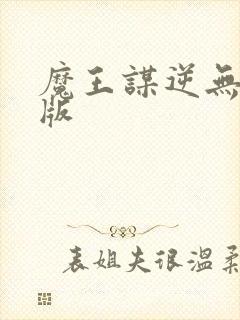 魔王謀逆無
版
表姐夫很溫柔